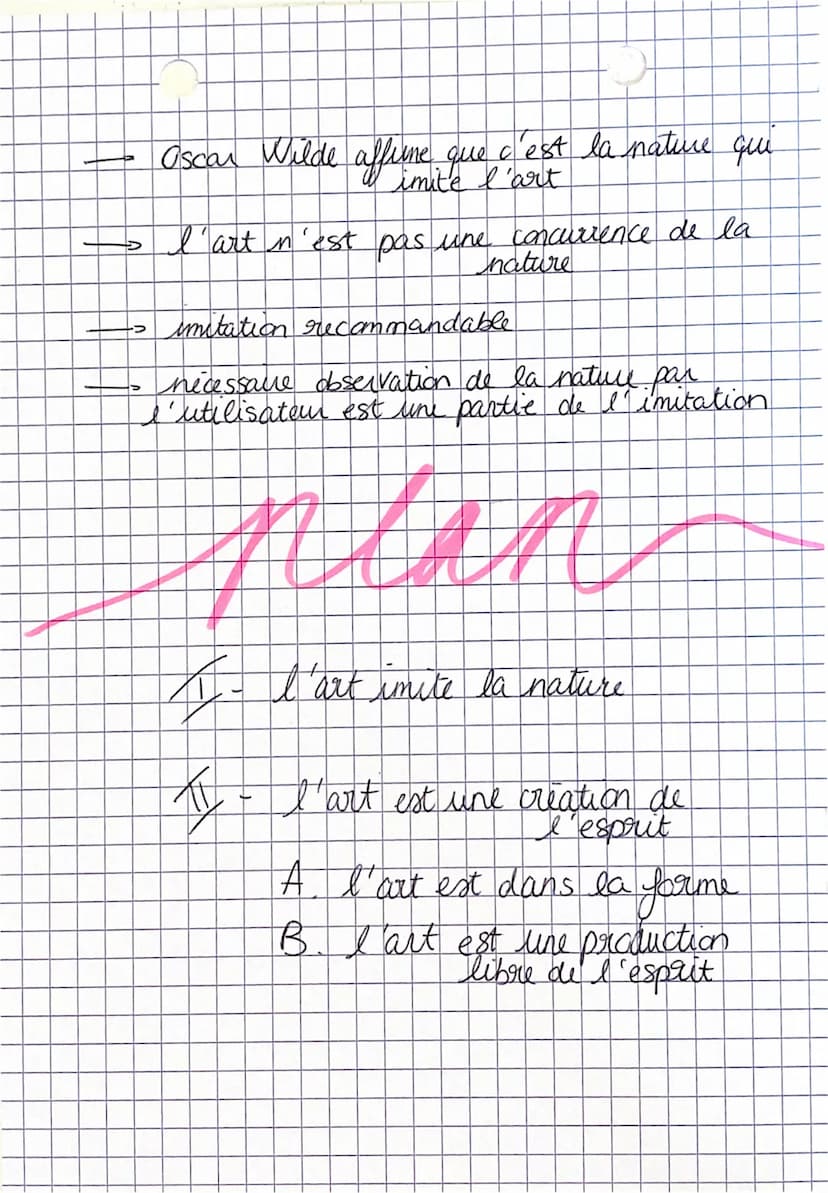 → Oscar Wilde affirme que c'est la nature qui
imite l'art
→ l'art n'est pas une concurrence de la
nature
→ imitation recommandable
→ nécessaire observation de la nature par
l'utilisateur est une partie de l'imitation
plan
I - l'art imite la nature
II - l'art est une création de
l'esprit
A. l'art est dans la forme
B. l'art est une production
libre de l'esprit